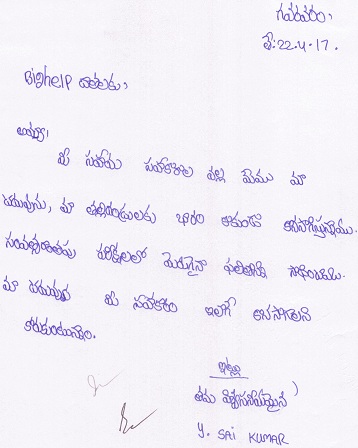 గవరవరం,
తే: 22-4-17.
Bighelp దాతలకు,
అయ్యా,
మీ సహాయ సహకారాల వల్ల మేము మా
చదువును, మా తల్లిదండ్రులకు భారం కాకుండా కొనసాగిస్తున్నాము.
సంవత్సరాంతపు పరీక్షలలో మెరుగైన ఫలితాన్ని సాధించాము.
మా చదువుకు మీ సహకారం ఇలాగే కొనసాగాలని
కోరుకుంటున్నాం.
ఇట్లు
తమ విశ్వసనీయమైన
Y. SAI KUMAR